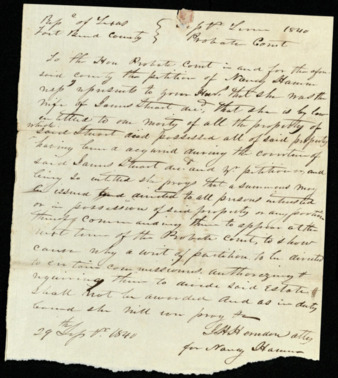 Rep.c of Texas { Sept. Term 1840
Fort Bend County { Probate Court
To the Hon Probate Court in and for the afore
said county the petition of Nancy
resp represents to your Hon. that she was the
wife of James Stuart decd. That she is by law
intitled to one moiety of all the property of
which said Stuart died possessed all of said property
having been acquired during the coverture of
said James Stuart decd and yr petitioner, and
being so intitled she prays that a summons may
be issued and directed to all persons interested
or in possession of said property or any portion
thereof commanding them to appear at the
next term of the Probate Court, to show
cause why a writ of partition to be directed
to certain commissioners authorizing &
requiring them to divide said Estate
shall not be awarded And as in duty
bound she will ever pray &c
J H Herndon atty
29th Sept. 1840 for Nancy